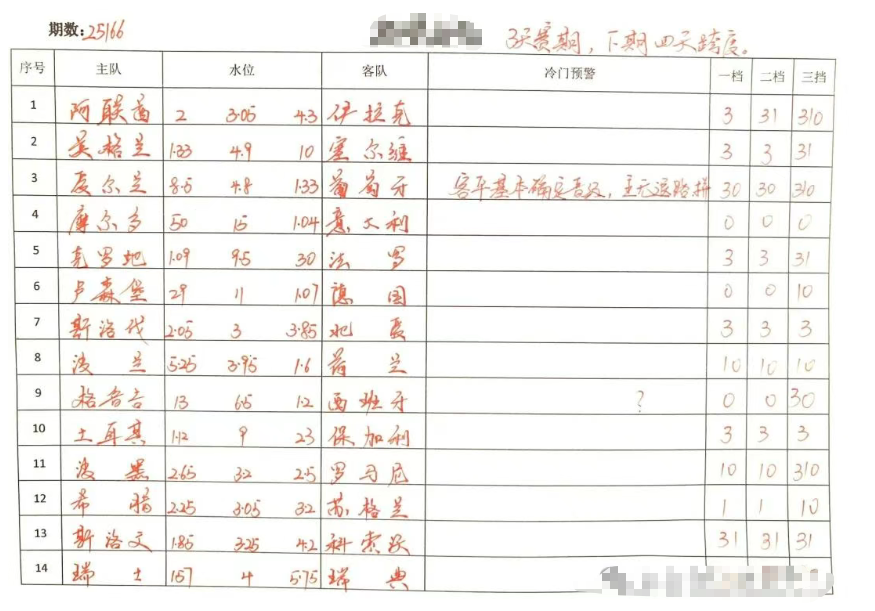 期数:25166
3天赛期，下期四天跨度。
序号 主队 水位 客队 冷门预警 一档 二档 三挡
1 阿联酋 2 3.05 4.3 伊拉克 3 31 310
2 英格兰 1.33 4.9 10 塞尔维 3 3 31
3 爱尔兰 8.5 4.8 1.33 葡萄牙 客平基本确定晋级，主无退路拼 30 30 310
4 摩尔多 50 15 1.04 意大利 0 0 0
5 克罗地 1.09 9.5 30 法罗 3 3 31
6 卢森堡 29 11 1.07 德国 0 0 10
7 斯洛伐 2.05 3 3.85 北爱 3 3 3
8 波兰 5.25 3.95 1.6 荷兰 10 10 10
9 格鲁吉 13 6.5 1.2 西班牙 ? 0 0 30
10 土耳其 1.12 9 23 保加利 3 3 3
11 波黑 2.65 3.2 2.5 罗马尼 10 10 310
12 希腊 2.25 3.05 3.2 苏格兰 1 1 10
13 斯洛文 1.85 3.25 4.2 科索沃 31 31 31
14 瑞士 1.57 4 5.75 瑞典